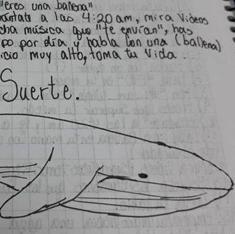 "eres una ballena"
a las 4:20 am, mira Videos
cha música que "te envian", has
po por día y habla con una (ballena)
cio muy alto, toma tu Vida.
Suerte.